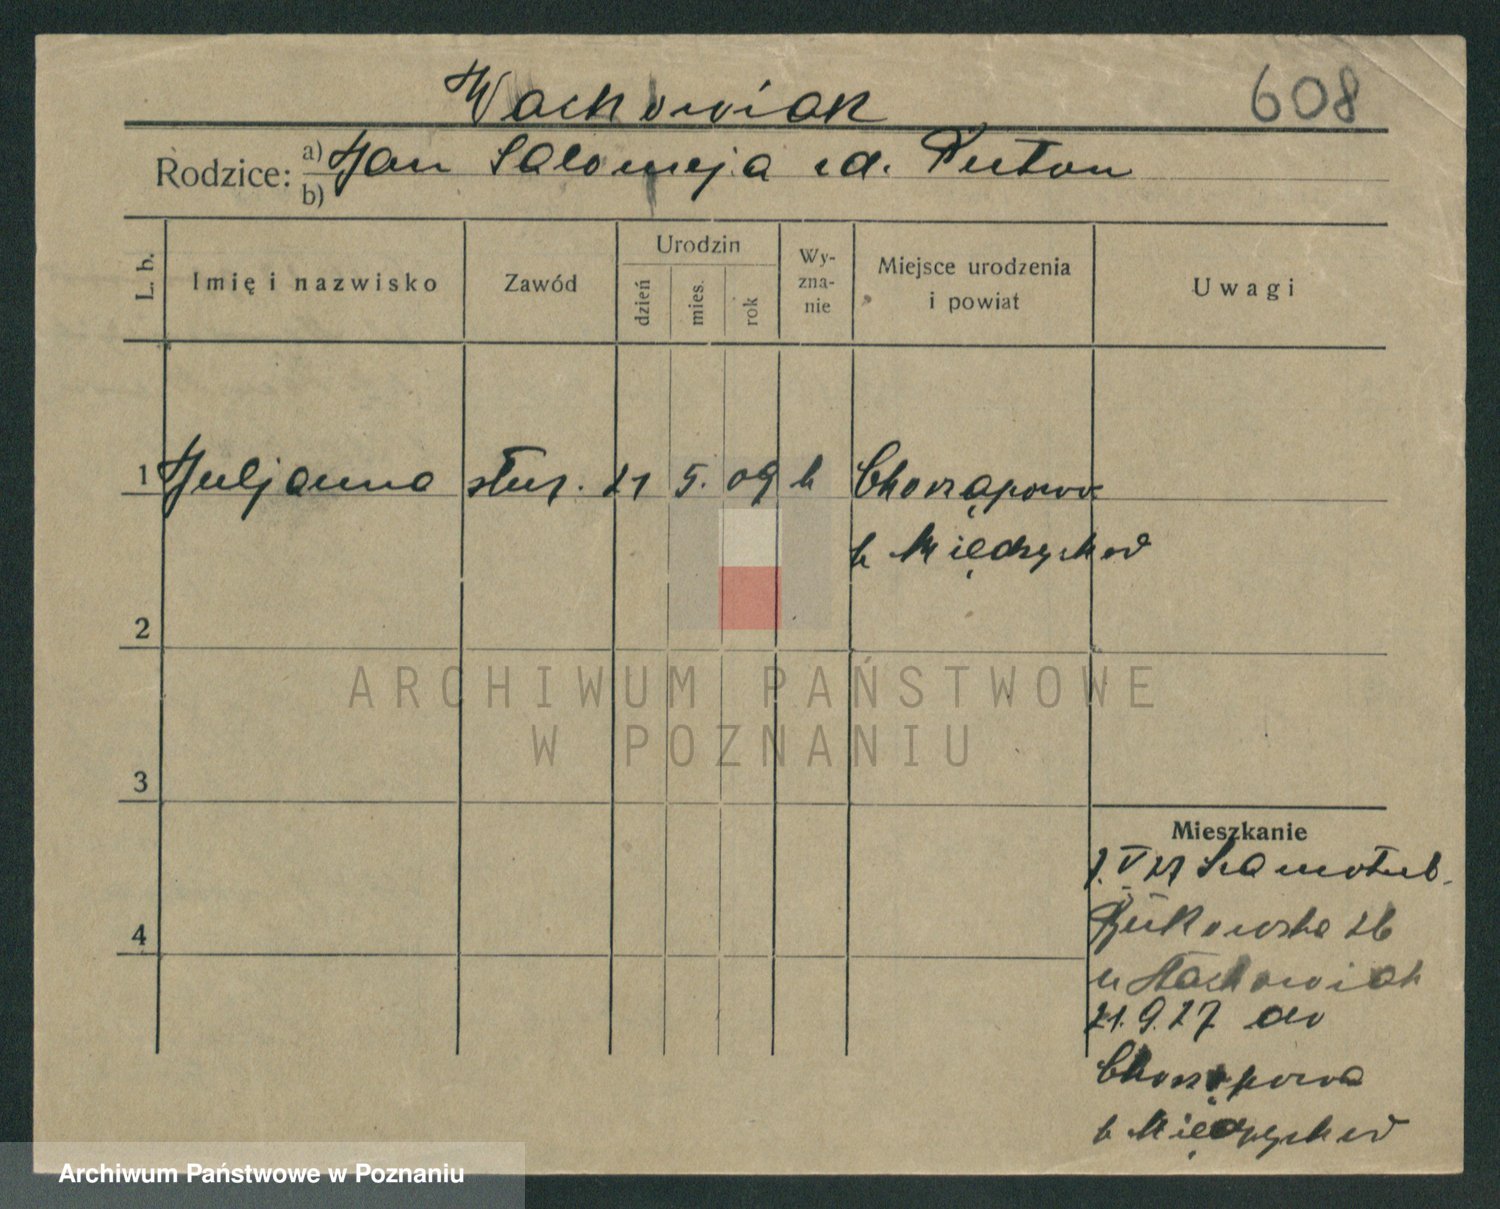 Wachowiak 608
Rodzice: a) Jan Salomeja zd. Puton
b)
L. b. Imię i nazwisko Zawód Urodzin dzień mies. rok Wy-zna-nie Miejsce urodzenia i powiat Uwagi
1 Juljanna służ. 21 5. 09 k Chorzępowo
p. Międzychód
2
ARCHIWUM PAŃSTWOWE
W POZNANIU
3
Mieszkanie
27 Szamotuł.
4 Bukowska 26
u Stachowiak
21.9.27 do
Chorzępowa
p. Międzychód
Archiwum Państwowe w Poznaniu